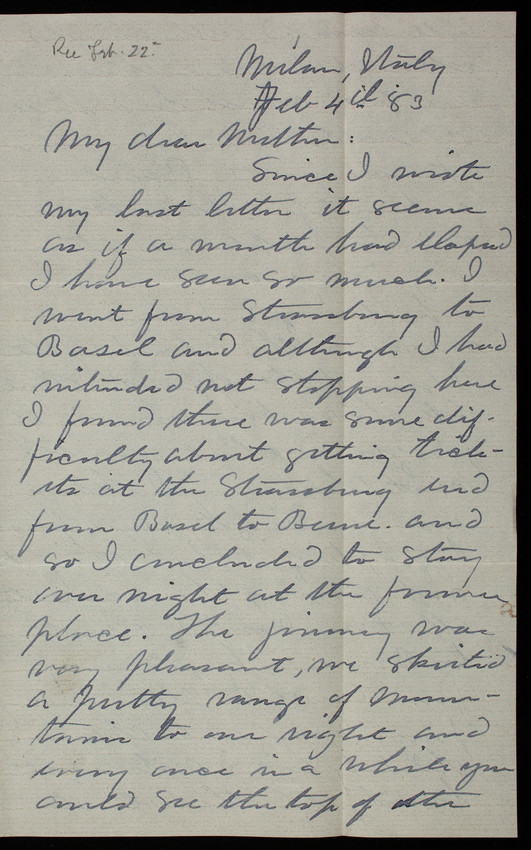 Rec Feb. 22.
Milan, Italy
Feb 4th 83
My dear Mother:
Since I wrote
my last letter it seems
as if a month had elapsed
I have seen so much. I
went from Strassburg to
Basel and although I had
intended not stopping here
I found there was some dif-
ficulty about getting tick-
ets at the Strassburg end
from Basel to Berne. and
so I concluded to stay
over night at the former
place. The journey was
very pleasant, we skirted
a pretty range of moun-
tains to our right and
every once in a while you
could see the top of the